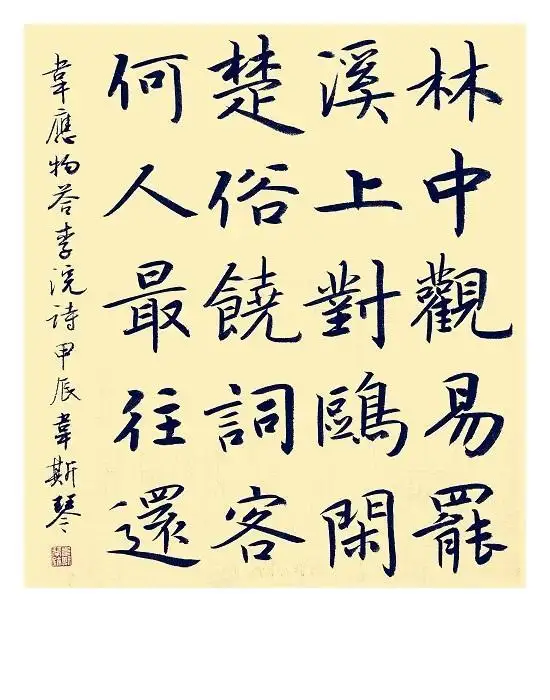 林中觀易罷
溪上對鷗閑
楚俗饒詞客
何人最往還
韋應物答李浣詩甲辰韋斯琴